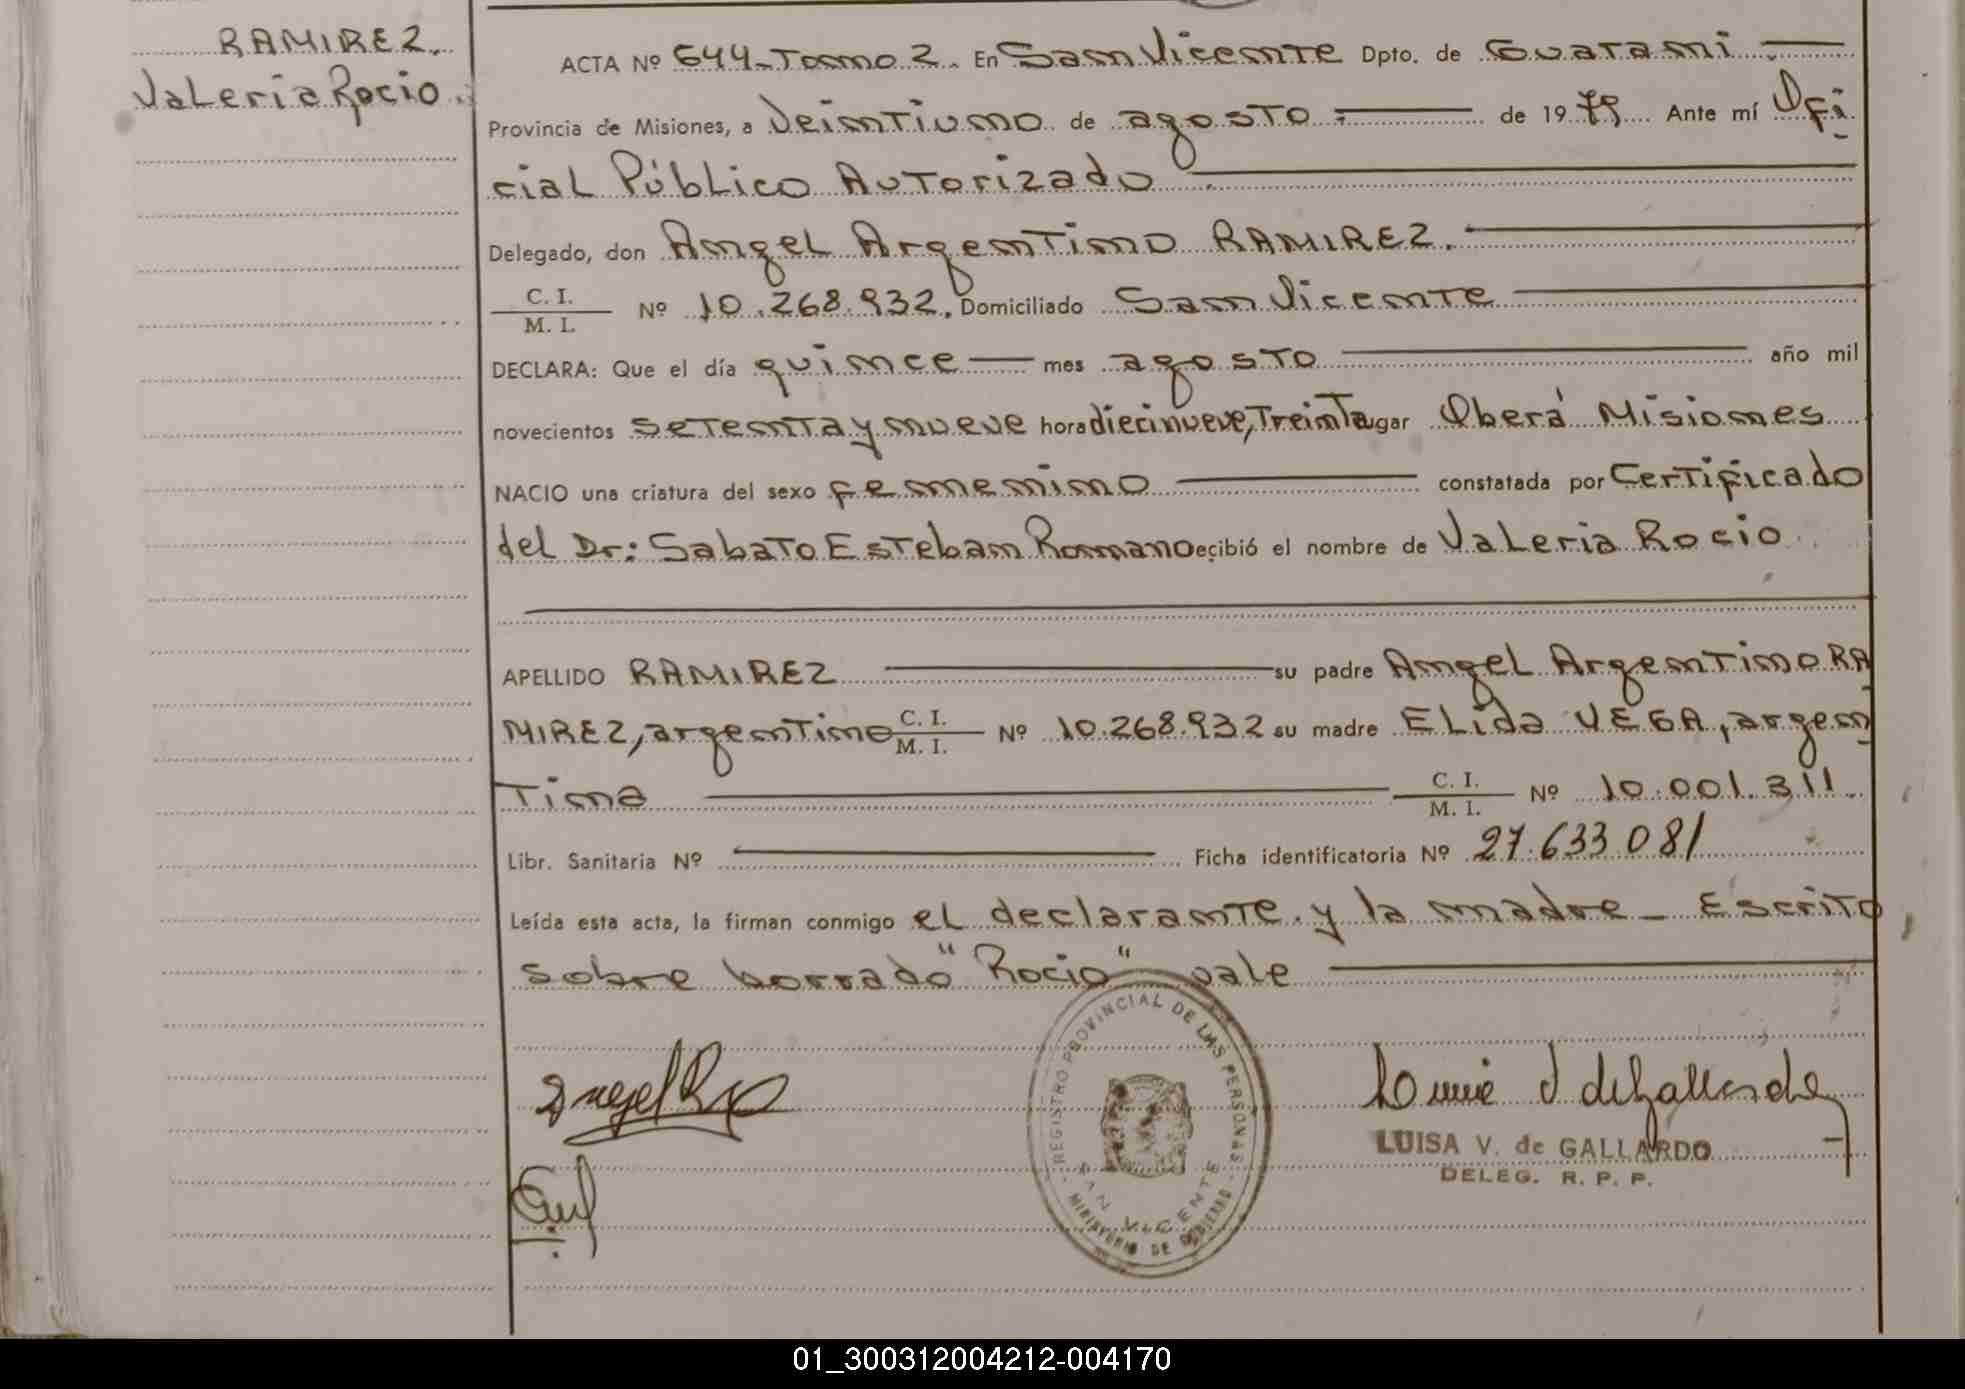 RAMIREZ.
Valeria Rocio.
ACTA Nº 644-Tomo 2. En San Vicente Dpto. de Guaraní
Provincia de Misiones, a Veintiuno de agosto de 1979 Ante mí Ofi
cial Público Autorizado
Delegado, don Angel Argentino RAMIREZ.
C. I.
M. I. Nº 10.268.932. Domiciliado San Vicente
DECLARA: Que el día quince mes agosto año mil
novecientos setenta y nueve hora diecinueve, Treinta gar Oberá Misiones
NACIO una criatura del sexo femenino constatada por Certificado
del Dr: Sabato Esteban Romano ecibió el nombre de Valeria Rocio
APELLIDO RAMIREZ su padre Angel Argentino RA
MIREZ, argentino C. I.
M. I. Nº 10.268.932 su madre Elida VEGA, argen
tina C. I.
M. I. Nº 10.001.311.
Libr. Sanitaria Nº Ficha identificatoria Nº 27.633.081
Leída esta acta, la firman conmigo el declarante y la madre - Escrito
sobre borrado "Rocio" vale
REGISTRO PROVINCIAL DE LAS PERSONAS
SAN VICENTE
MINISTERIO DE GOBIERNO
LUISA V. de GALLARDO
DELEG. R. P. P.
01_300312004212-004170